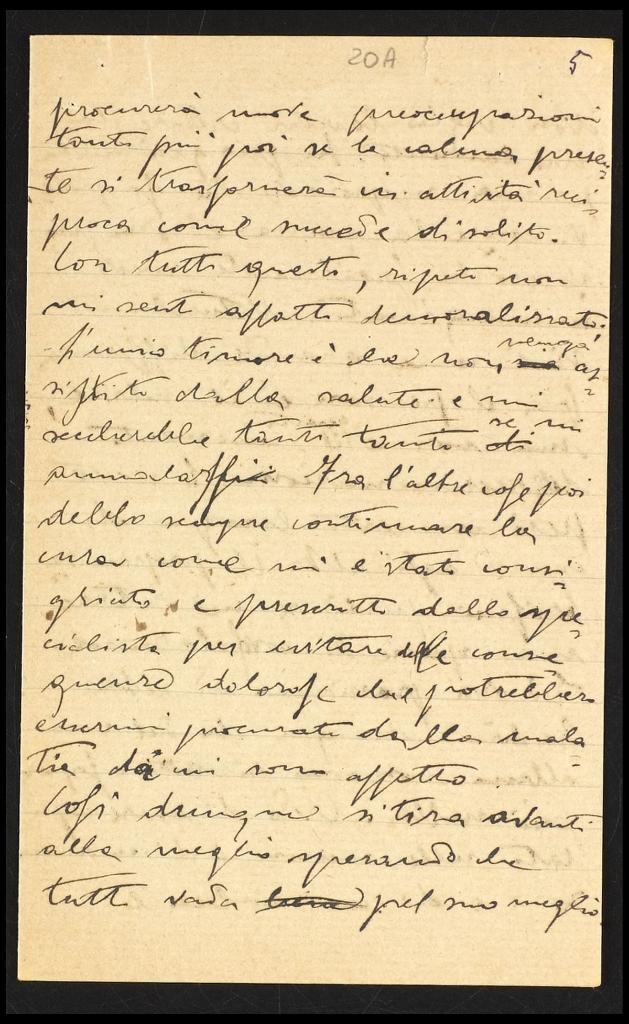 20A 5
procurerà nuove preoccupazioni
tanto più poi se la calma presen=
te si trasformerà in attività reci=
proca come succede di solito.
Con tutto questo, ripeto non
mi sento affatto demoralizzato.
L'unico timore è che non venga as=
sistito dalla salute e mi
seccherebbe tanto tanto se mi
ammalassi. Fra l'altre cose poi
debbo sempre continuare la
cura come mi è stato consi=
gliato e prescritto dallo spe=
cialista per evitare delle conse=
guenze dolorose che potrebbero
essermi procurate dalla mala=
tia da cui sono affetto.
Così dunque si tira avanti
alla meglio sperando che
tutto vada pel suo meglio.